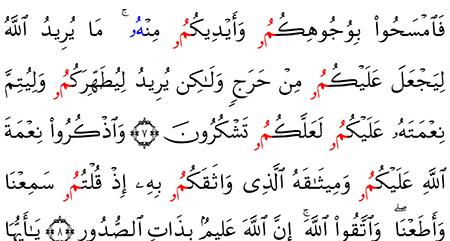 فَٱمْسَحُوا۟ بِوُجُوهِكُمُۥ وَأَيْدِيكُمُۥ مِنْهُۥ ۚ مَا يُرِيدُ ٱللَّهُ
لِيَجْعَلَ عَلَيْكُمُۥ مِنْ حَرَجٍ وَلَـٰكِن يُرِيدُ لِيُطَهِّرَكُمُۥ وَلِيُتِمَّ
نِعْمَتَهُۥ عَلَيْكُمُۥ لَعَلَّكُمُۥ تَشْكُرُونَ ﴿٧﴾ وَٱذْكُرُوا۟ نِعْمَةَ
ٱللَّهِ عَلَيْكُمُۥ وَمِيثَـٰقَهُ ٱلَّذِى وَاثَقَكُمُۥ بِهِۦ إِذْ قُلْتُمُۥ سَمِعْنَا
وَأَطَعْنَا ۖ وَٱتَّقُوا۟ ٱللَّهَ ۚ إِنَّ ٱللَّهَ عَلِيمٌۢ بِذَاتِ ٱلصُّدُورِ ﴿٨﴾ يَـٰٓأَيُّهَا